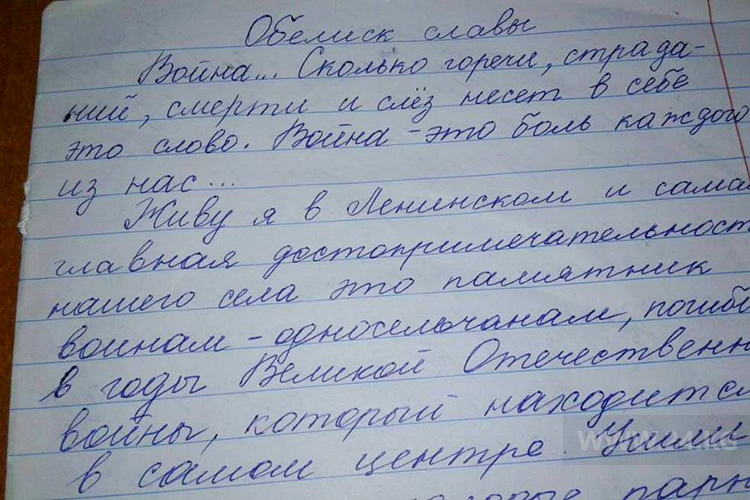 Обелиск славы
Война... Сколько горечи, страда-
ний, смерти и слёз несет в себе
это слово. Война - это боль каждого
из нас...
Живу я в Ленинском и сама
главная достопримечательност
нашего села это памятник
воинам - односельчанам, погиб
в годы Великой Отечественн
войны, который находится
в самом центре. Ушли